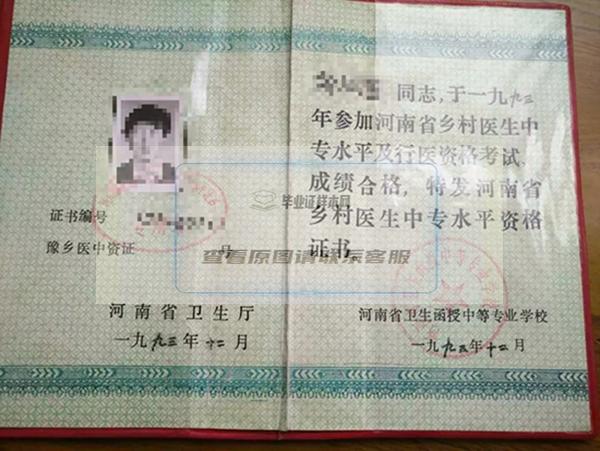 证书编号
豫乡医中资证 号
河南省卫生厅
一九九三年十二月
同志,于一九九三
年参加河南省乡村医生中
专水平及行医资格考试、
成绩合格,特发河南省
乡村医生中专水平资格
证书
河南省卫生函授中等专业学校
一九九三年十二月
毕业证样本网
查看原图请联系客服